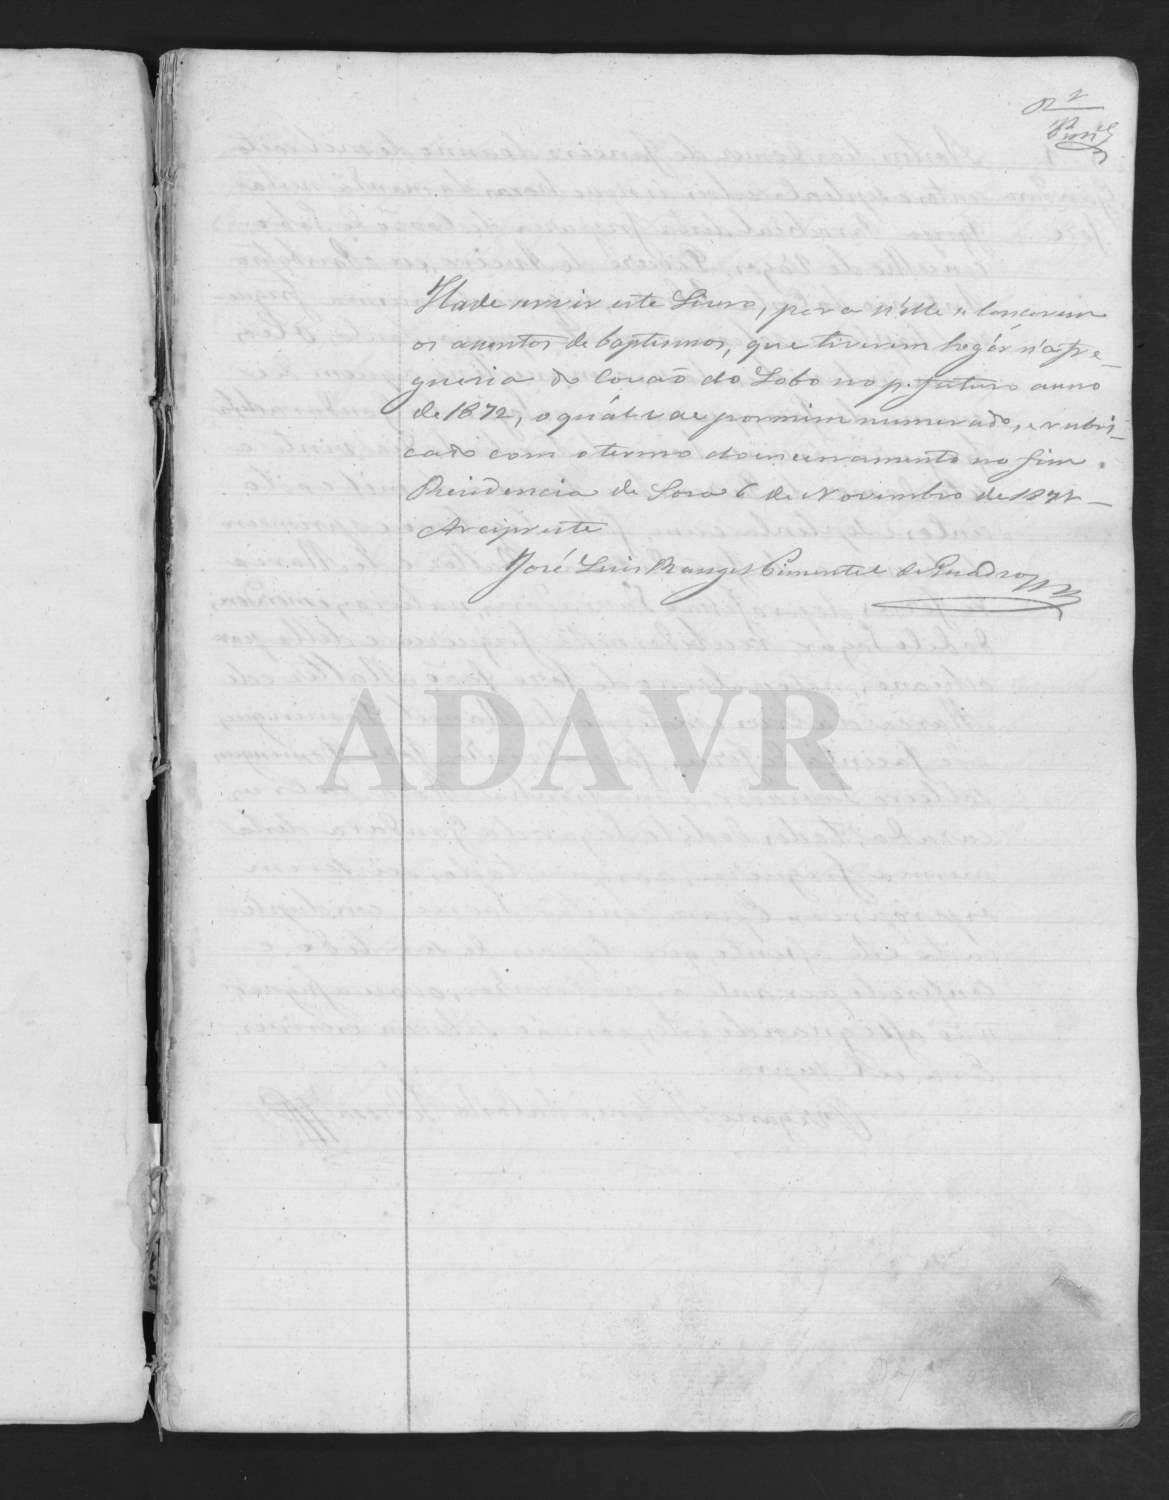 Hade servir este Livro, para n'elle se lançarem
os assentos de baptismos, que tiverem logár n'a fre-
guesia de Covaõ do Lobo no p. futuro anno
de 1872, o quál vae por mim numerado, e rubri-
cado com o termo do encerramento no fim.
Presidencia de Sora 6 de Novembro de 1871
Arcipreste
José Luis Rangel Pimentel de Quadros
ADAVR